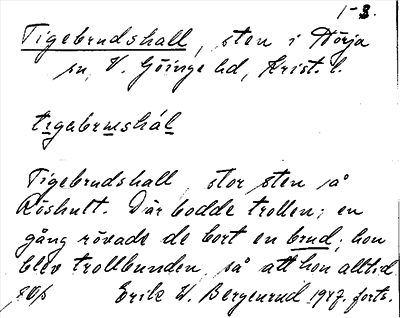 1-3.
Tigebrudshall, sten i Hörja
sn, V. Göinge hd, Krist. l.
tigabrushál
Tigebrudshall, stor sten på
Röshult. Där bodde trollen; en
gång rövade de bort en brud; hon
blev trollbunden, så att hon alltid
Erik W. Bergenrud 1947. forts.